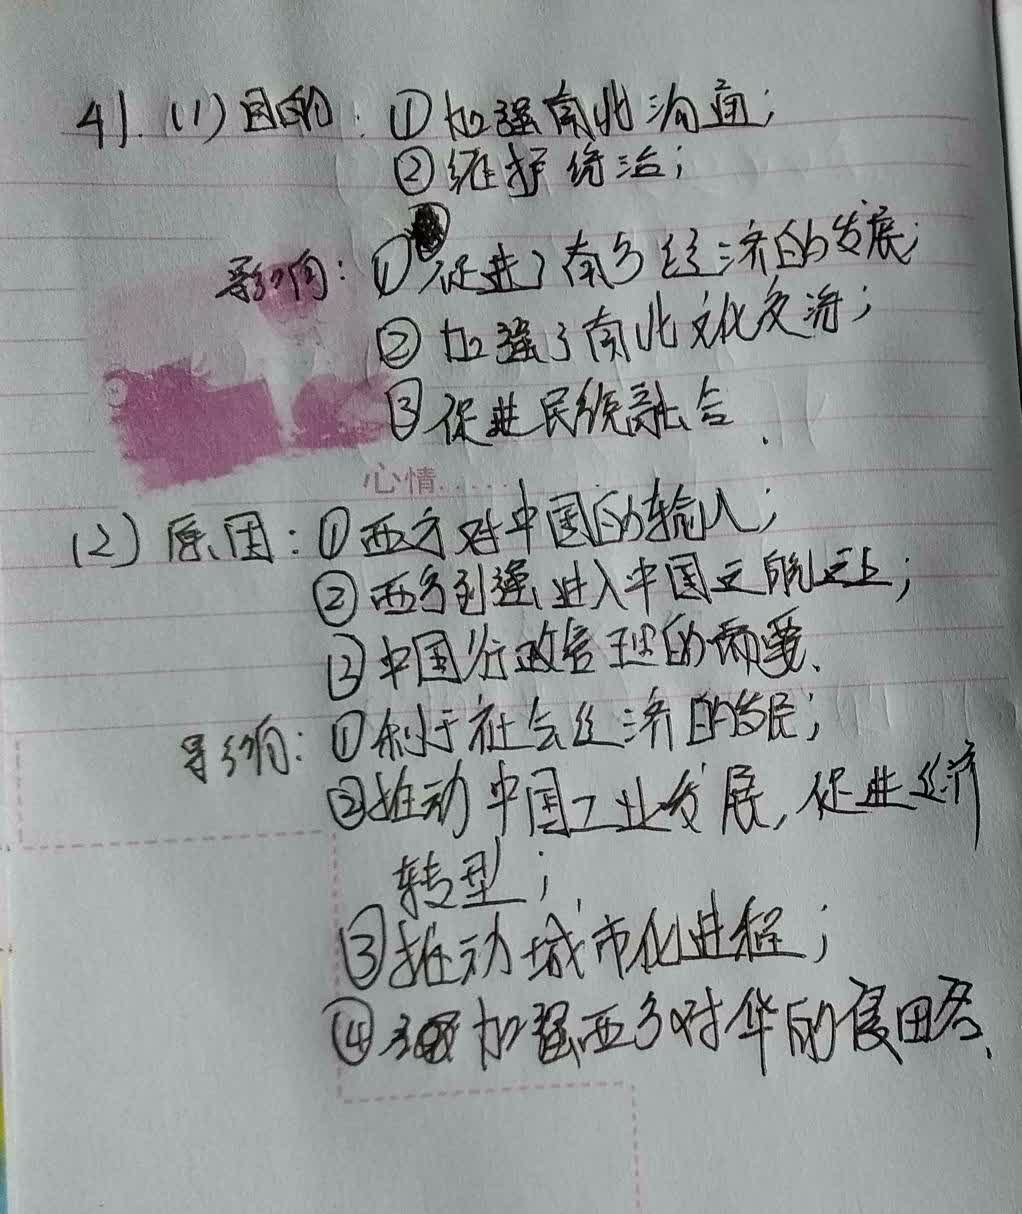 41. (1) 目的: ①加强南北沟通;
②维护统治;
影响: ①促进了南方经济的发展;
②加强了南北文化交流;
③促进民族融合.
心情......
(2) 原因: ①西方对中国的输入;
②西方列强进入中国
③中国行政管理的需要.
影响: ①利于社会经济的发展;
②推动中国工业发展, 促进经济
转型;
③推动城市化进程;
④加强西方对华的侵略.